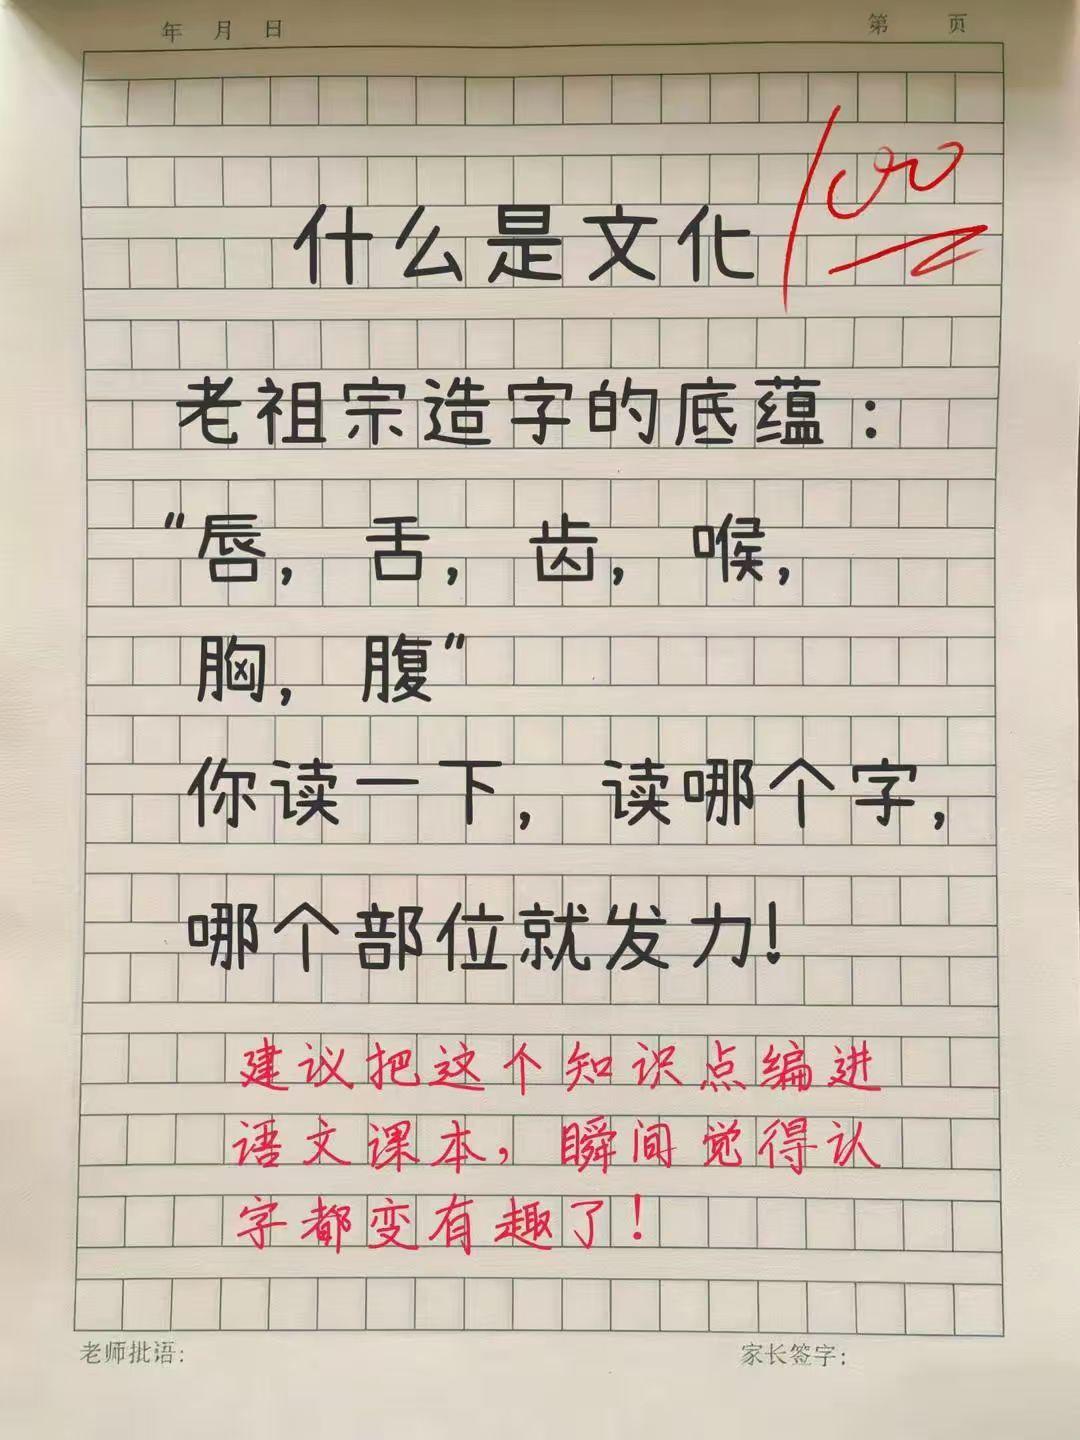 年 月 日 第 页
100
什么是文化
老祖宗造字的底蕴：
“唇，舌，齿，喉，
胸，腹”
你读一下，读哪个字，
哪个部位就发力！
建议把这个知识点编进
语文课本，瞬间觉得认
字都变有趣了！
老师批语： 家长签字：